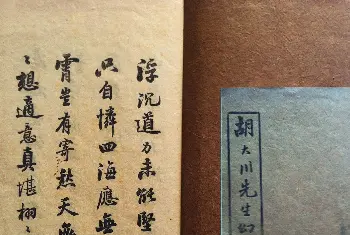 浮沉道力未能堅
只自憐四海應無
霄豈有寄愁天無
〻想適意真堪栩〻
胡大川先生幻